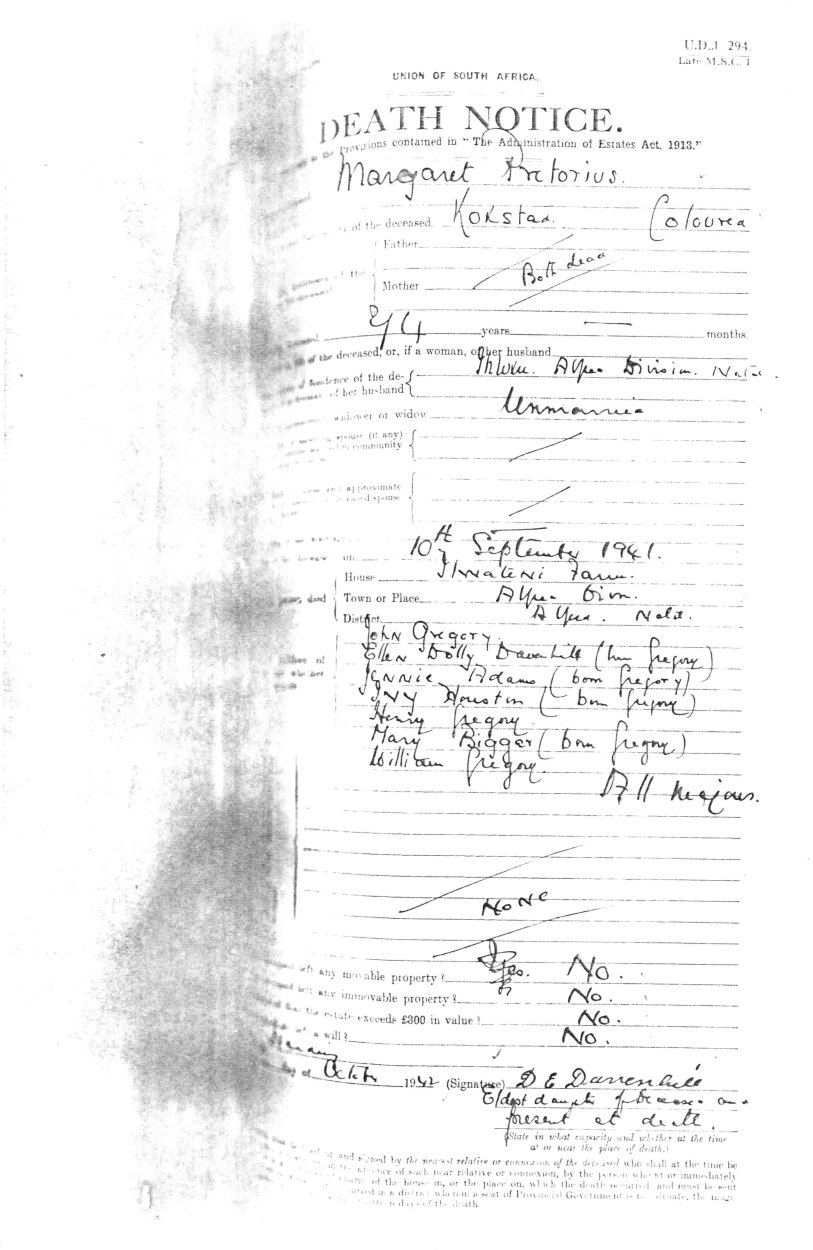 U.D.J 294.
Late M.S.C. 1
UNION OF SOUTH AFRICA.
DEATH NOTICE.
in the Provisions contained in "The Administration of Estates Act. 1913."
Margaret Pretorius.
of the deceased. Kokstad. Coloured
Father
Both dead
of the
Mother
74 years — months.
of the deceased, or, if a woman, of her husband
Division. Natal
of the de-
of her husband
widower or widow Unmarried
spouse (if any)
in community
approximate
spouse
on 10th September 1941.
House Farm.
Town or Place
District Natal.
John Gregory.
Ellen Dolly Davenhill (born Gregory)
Jennie Adams (born Gregory)
Ivy Houston (born Gregory)
Henry Gregory
Mary Bigger (born Gregory)
William Gregory.
All majors.
None
left any movable property? Yes. No.
left any immovable property? No.
that the estate exceeds £300 in value? No.
a will? No.
day of October 1942 (Signature) D E Davenhill
Eldest daughter of deceased and
present at death.
(State in what capacity and whether at the time
at or near the place of death.)
and signed by the nearest relative or connexion of the deceased who shall at the time be
the absence of such near relative or connexion, by the person who at or immediately
of the house in, or the place on, which the death occurred and must be sent
in a district wherein a seat of Provincial Government is situate, the
days of the death